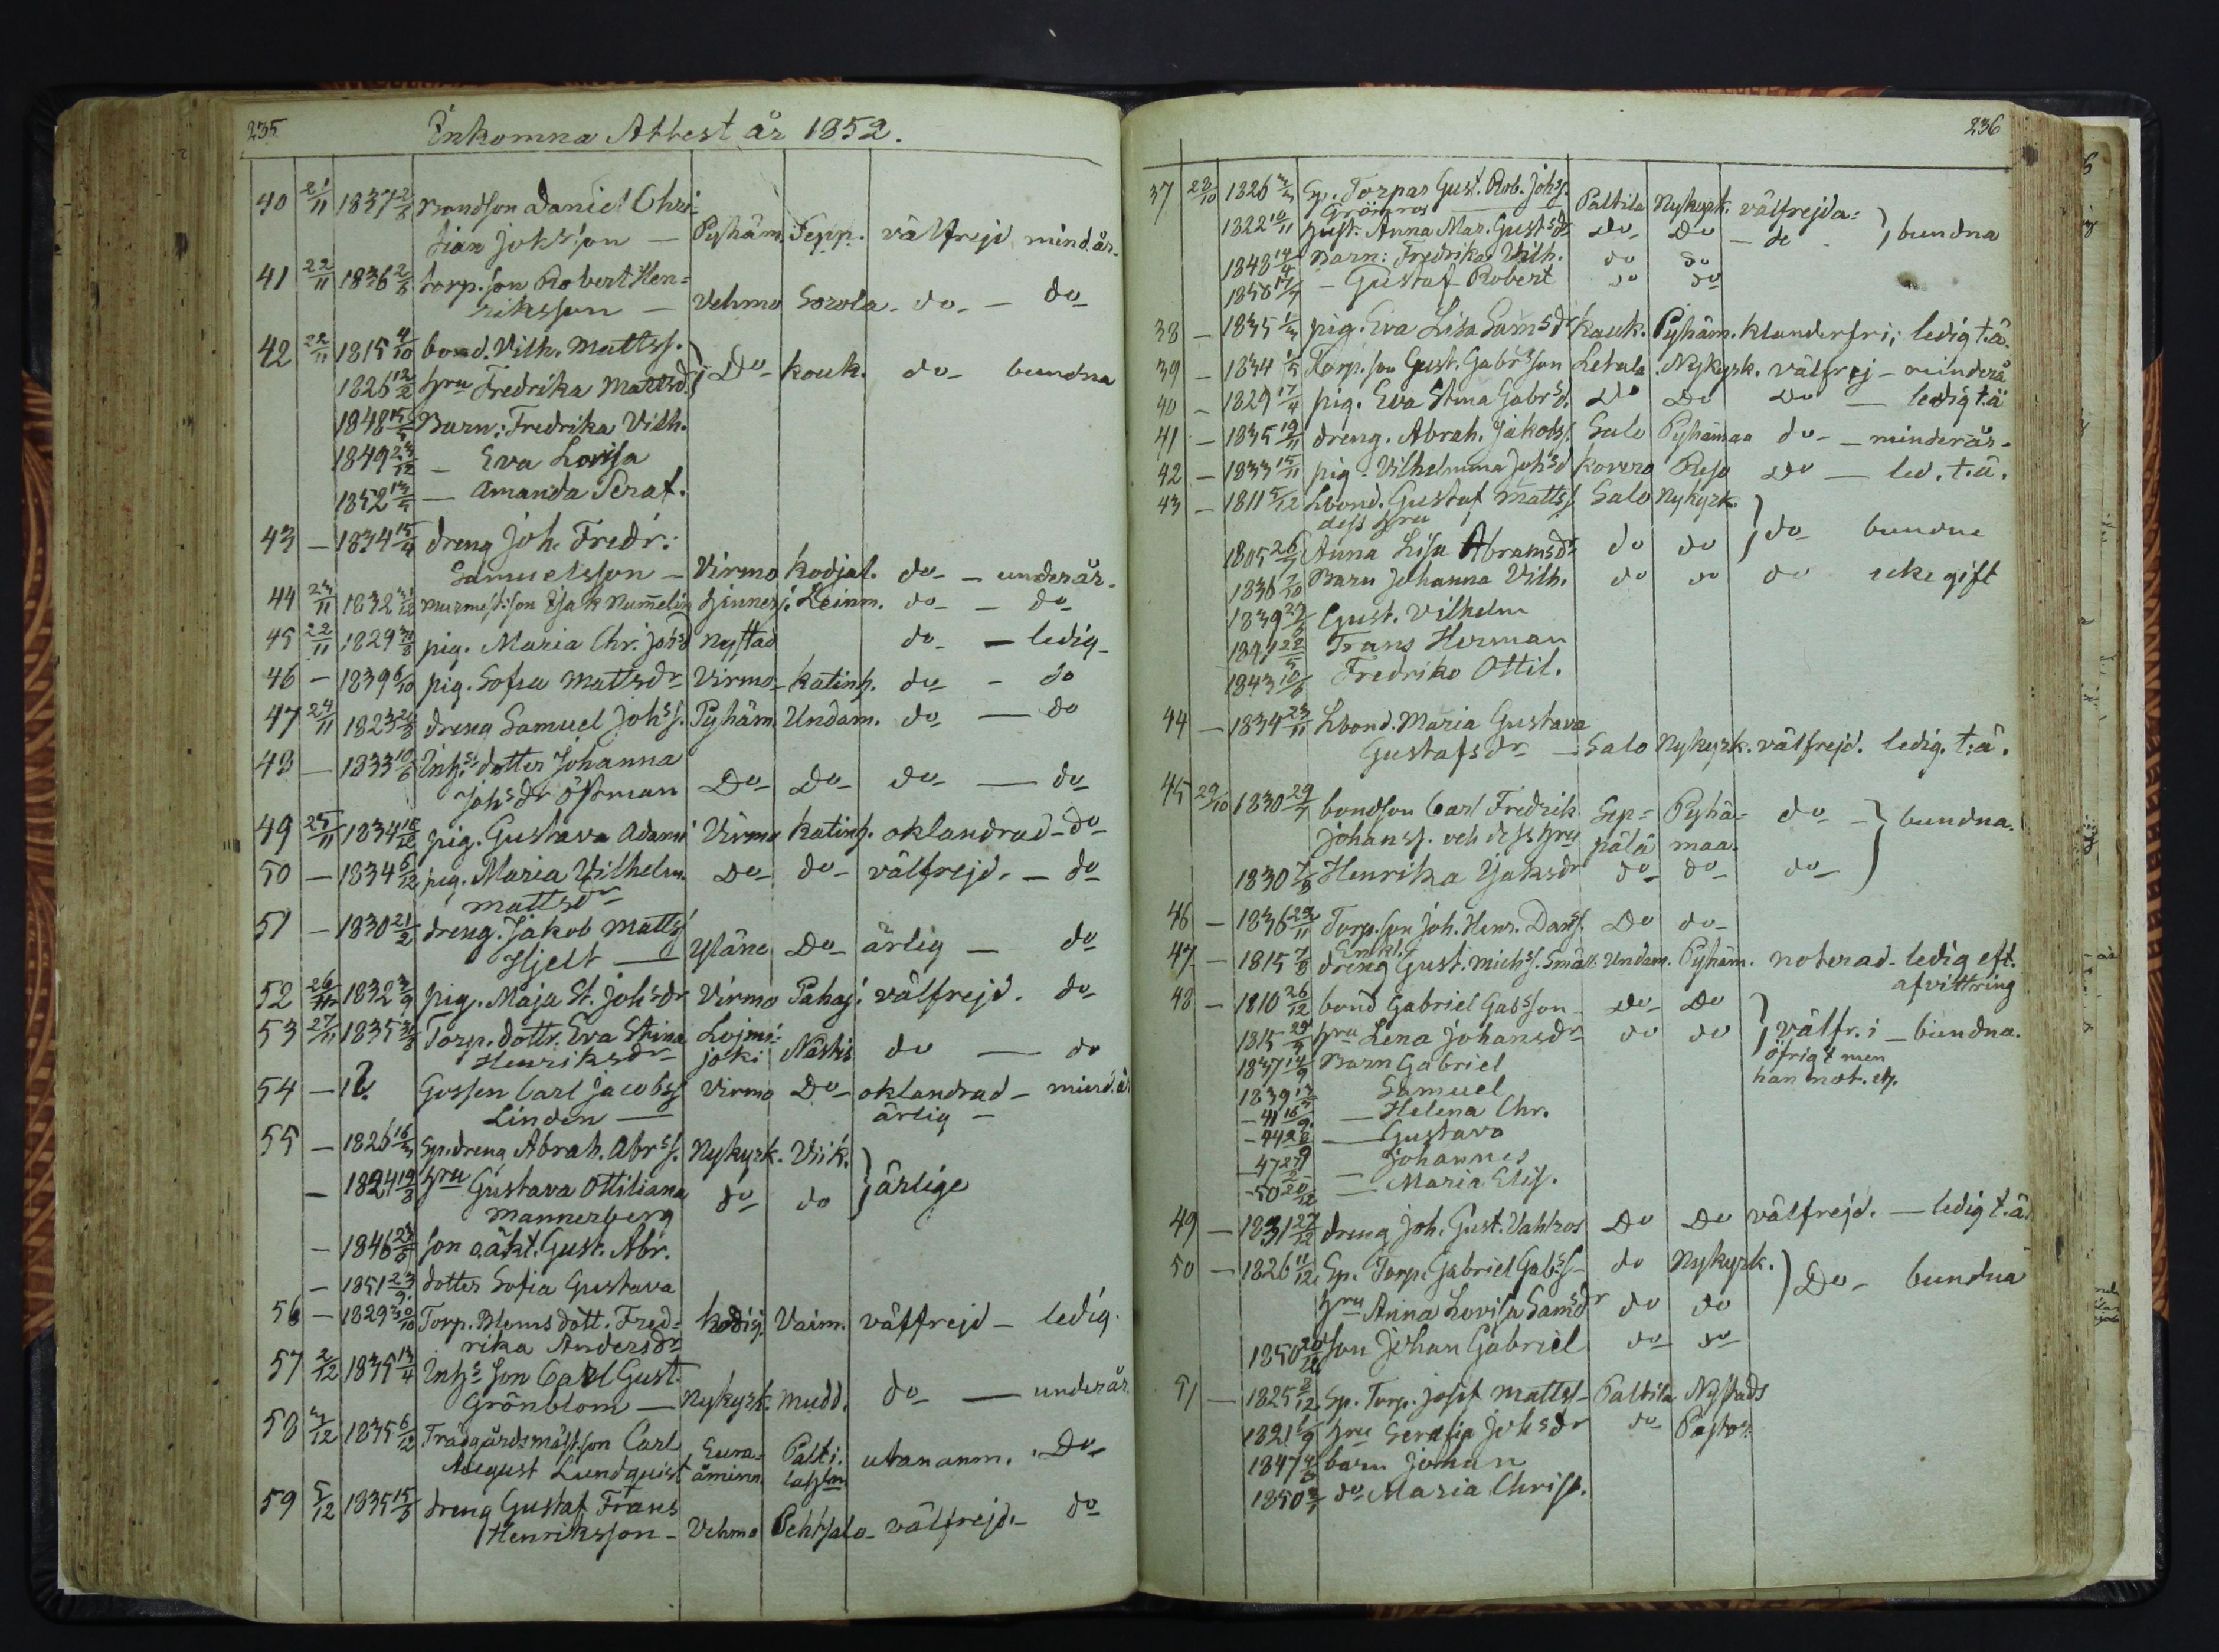 235
Inkomna Attest år 1852.
40 21/11 1837 2/8 Bondson Daniel Chri-
stian Johsson — Pyhäm. Sepp. välfrejd mindår.
41 22/11 1836 2/8 torp. son Robert Hen-
riksson — Vehmo Sorola do — do
42 22/11 1815 4/10 bond. Vilh. Mattss.
1826 12/2 hru Fredrika Mattsd. } Do kouk. do bundna
1848 15/5 Barn: Fredrika Vilh.
1849 23/12 — Eva Lovisa
1852 13/5 — Amanda Seraf.
43 — 1834 15/4 dreng Joh. Fredr.
Samuelsson — Virmo kodjal. do — underår.
44 23/11 1832 31/12 murmest. son Isak Numelin hinnerj. Leinm. do — do
45 22/11 1829 31/8 pig. Maria Chr. Johsd Nystad do — ledig
46 — 1839 6/10 pig. Sofia Mattsdr Virmo katinh. do — do
47 24/11 1823 20/8 dreng Samuel Johss. Pyhäm. Undam. do — do
48 — 1833 10/6 Inhs. dotter Johanna
Johsdr Östman Do do do — do
49 25/11 1834 18/12 pig. Gustava Adams Virmo katinh. oklandrad do
50 — 1834 6/12 pig. Maria Vilhelm. Do do välfrejd. — do
mattsdr
51 — 1830 21/2 dreng. Jakob Matts
Hjelt — Yläne Do ärlig — do
52 26/11 1832 3/9 pig. Maja St. Johsdr Virmo Pahaj. välfrejd. do
53 27/11 1835 31/8 Torp. dottr. Eva Stina Lojmi-
Henriksdr joki Näsis do — do
54 — 1? Gossen Carl Jacobss Virmo Do oklandrad — mind.å
Linden — ärlig —
55 — 1826 16/3 Sp. dreng Abrah. Abrss. Nykyrk. Viik.
— 1824 19/8 hru Gustava Ottiliana do do } ärlige
Mannerberg
— 1846 23/6 son oäkt. Gust. Abr.
— 1851 23/9 dotter Sofia Gustava
56 — 1829 30/10 Torp. Bloms dott. Fred- kodij. Vaim. välfrejd — ledig.
rika Andersdr
57 2/12 1835 13/4 Inhs son Carl Gust.
Grönblom — Nykyrk. mudd. do — underår
58 3/12 1835 6/12 Trädgårdsmäst. son Carl Eura- Palti.
August Lundquist åminn. utan anm. Do
59 5/12 1835 15/8 dreng Gustaf Frans
Henriksson — Vehmo Pehtsalo välfrejd. do
236
37 28/10 1826 Sp. Torpar Gust. Rob. Johss. Paltila Nykyrk. välfrejda:
Grönros
1822 10/11 hust. Anna Mar. Gustsdr do Do — de } bundna
1848 14/4 Barn: Fredrika Vilh. do do
1850 17/7 — Gustaf Robert do do
38 — 1835 1/3 pig. Eva Lisa Samsdr kauk. Pyhäm. klanderfri; ledig t.ä.
39 — 1834 1/5 Torp. son Gust. Gabrsson Letala. Nykyrk. välfrej — minderå
40 — 1829 17/4 pig. Eva Stina Gabrsd. Do Do Do — ledig t.ä
41 — 1835 19/11 dreng. Abrah. Jakobss. Salo Pyhämaa do — minderår
42 — 1833 15/11 pig. Vilhelmina Johsd kovero Reso Do — led. t.ä.
43 — 1811 5/12 Lbond. Gustaf Mattss Salo Nykyrk.
dess hru
1805 26/7 Anna Lisa Abramsdr do do } do bundne
1836 7/10 Barn Johanna Vilh. do do do icke gift
1839 27/6 Gust. Vilhelm
1841 22/5 Frans Herman
1843 10/6 Fredrika Ottil.
44 — 1834 23/11 Lbond. Maria Gustava
Gustafsdr — Salo Nykyrk. välfrejd. ledig. t.ä.
45 29/10 1830 29/7 bondson Carl Fredrik Sep- Pyhä- do — } bundna.
Johanss. och dess hru pälä maa.
1830 7/8 Henrika Isaksdr do do do
46 — 1836 22/11 Torp. son Joh. Henr. Danss. Do do
47 — 1815 7/8 dreng Gust. Michss. Småll. Undam. Pyhäm. noterad. ledig eft.
Enkl.
afvittring
48 — 1810 26/12 bond Gabriel Gabsson — Do Do
1815 24/9 hru Lena Johansdr do do } välfr. i — bundna.
1837 14/9 Barn Gabriel öfrigt men
1839 13/3 Samuel han not. etc.
— 41 16/9 — Helena Chr.
— 44 2/8 — Gustava
— 47 27/2 — Johannes
— 50 20/12 — Maria Elis.
49 — 1831 27/12 dreng Joh. Gust. Vahlros Do Do välfrejd. — ledig t.ä.
50 — 1826 11/12 Sp. Torp. Gabriel Gabss — do Nykyrk.
hru Anna Lovisa Samsdr do do } Do — bundna
1850 20/12 son Johan Gabriel do do
51 — 1825 8/12 Sp. Torp. Josef Mattss — Paltila Nystads
1821 1/9 hru Serafia Johsdr do Pastor:
1847 4/8 barn Johan
1850 3/1 do Maria Christ.